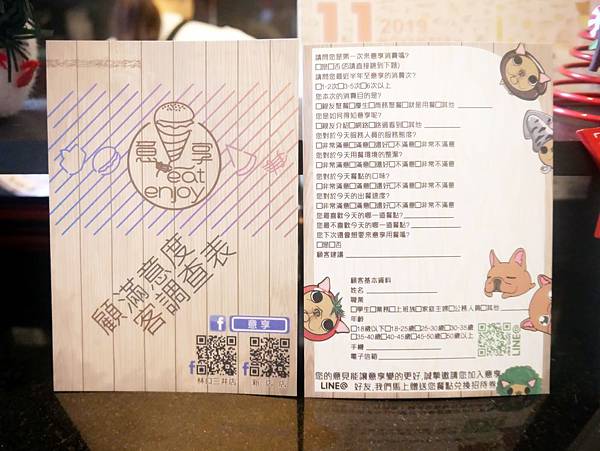 11
2019
意享
eat
enjoy
顧滿意度
客調查表
f 意享
f
f
林口三井店
新店店
請問您是第一次來意享消費嗎?
□是□否(否請直接跳到下題)
請問您最近半年至意享的消費次?
□1-2次□3-5次□6次以上
您本次的消費目的是?
□親友聚餐□學生□商務聚餐□就是用餐□其他
您是如何得知意享呢?
□親友介紹□網路□路過看到□其他
您對於今天服務人員的服務態度?
□非常滿意□滿意□還好□不滿意□非常不滿意
您對於今天用餐環境的整潔?
□非常滿意□滿意□還好□不滿意□非常不滿意
您對於今天餐點的口味?
□非常滿意□滿意□還好□不滿意□非常不滿意
您對於今天的出餐速度?
□非常滿意□滿意□還好□不滿意□非常不滿意
您最喜歡今天的哪一道餐點?
您最不喜歡今天的哪一道餐點?
您下次還會想要來意享用餐嗎?
□是□否
顧客建議
顧客基本資料
姓名
職業
□學生□業務□上班族□家庭主婦□公務人員□其他
年齡
□18歲以下□18-25歲□25-30歲□30-35歲
□35-40歲□40-45歲□45-50歲□50歲以上
手機
電子信箱
LINE@
您的意見能讓意享變的更好,誠摯邀請您加入意享
LINE@ 好友,我們馬上贈送您餐點兌換招待券